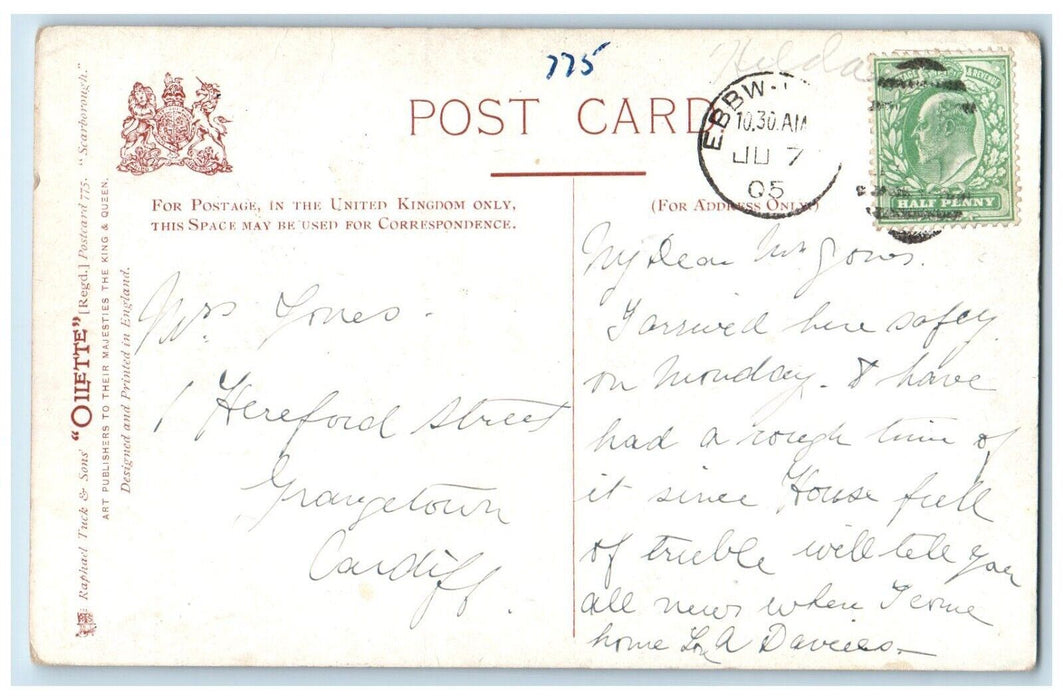 775
Hilda
POST CARD
EBBW-
10.30.AM
JU 7
05
POSTAGE & REVENUE
HALF PENNY
FOR POSTAGE, IN THE UNITED KINGDOM ONLY,
THIS SPACE MAY BE USED FOR CORRESPONDENCE.
(FOR ADDRESS ONLY)
Raphael Tuck & Sons' "OILETTE" [Regd.] Postcard 775. "Scarborough."
ART PUBLISHERS TO THEIR MAJESTIES THE KING & QUEEN.
Designed and Printed in England.
Mrs Jones.
1 Hereford Street
Grangetown
Cardiff.
My Dear Mrs Jones.
I arrived here safey
on Monday. & have
had a rough time of
it since House full
of truble will tele you
all news when I come
home A Davies